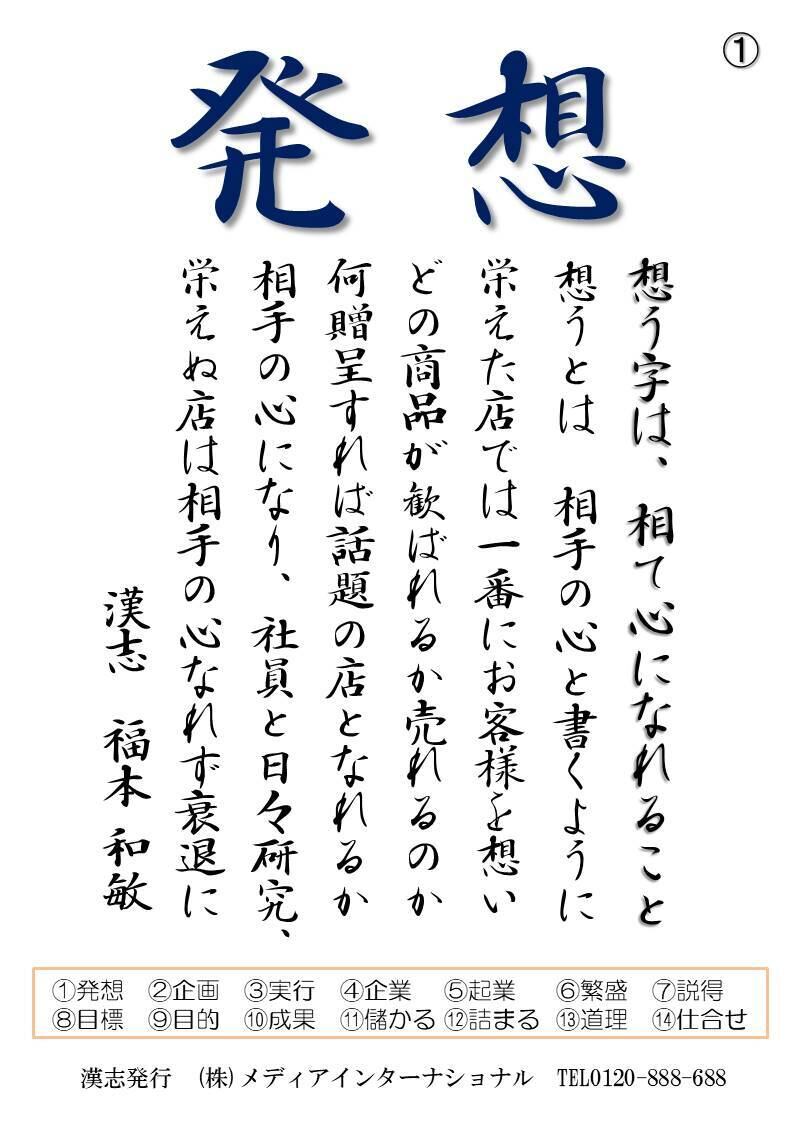 ①
発想
想う字は、相て心になれること
想うとは 相手の心と書くように
栄えた店では一番にお客様を想い
どの商品が歓ばれるか売れるのか
何贈呈すれば話題の店となれるか
相手の心になり、社員と日々研究、
栄えぬ店は相手の心なれず衰退に
漢志 福本 和敏
①発想 ②企画 ③実行 ④企業 ⑤起業 ⑥繁盛 ⑦説得
⑧目標 ⑨目的 ⑩成果 ⑪儲かる ⑫詰まる ⑬道理 ⑭仕合せ
漢志発行 (株)メディアインターナショナル TEL0120-888-688